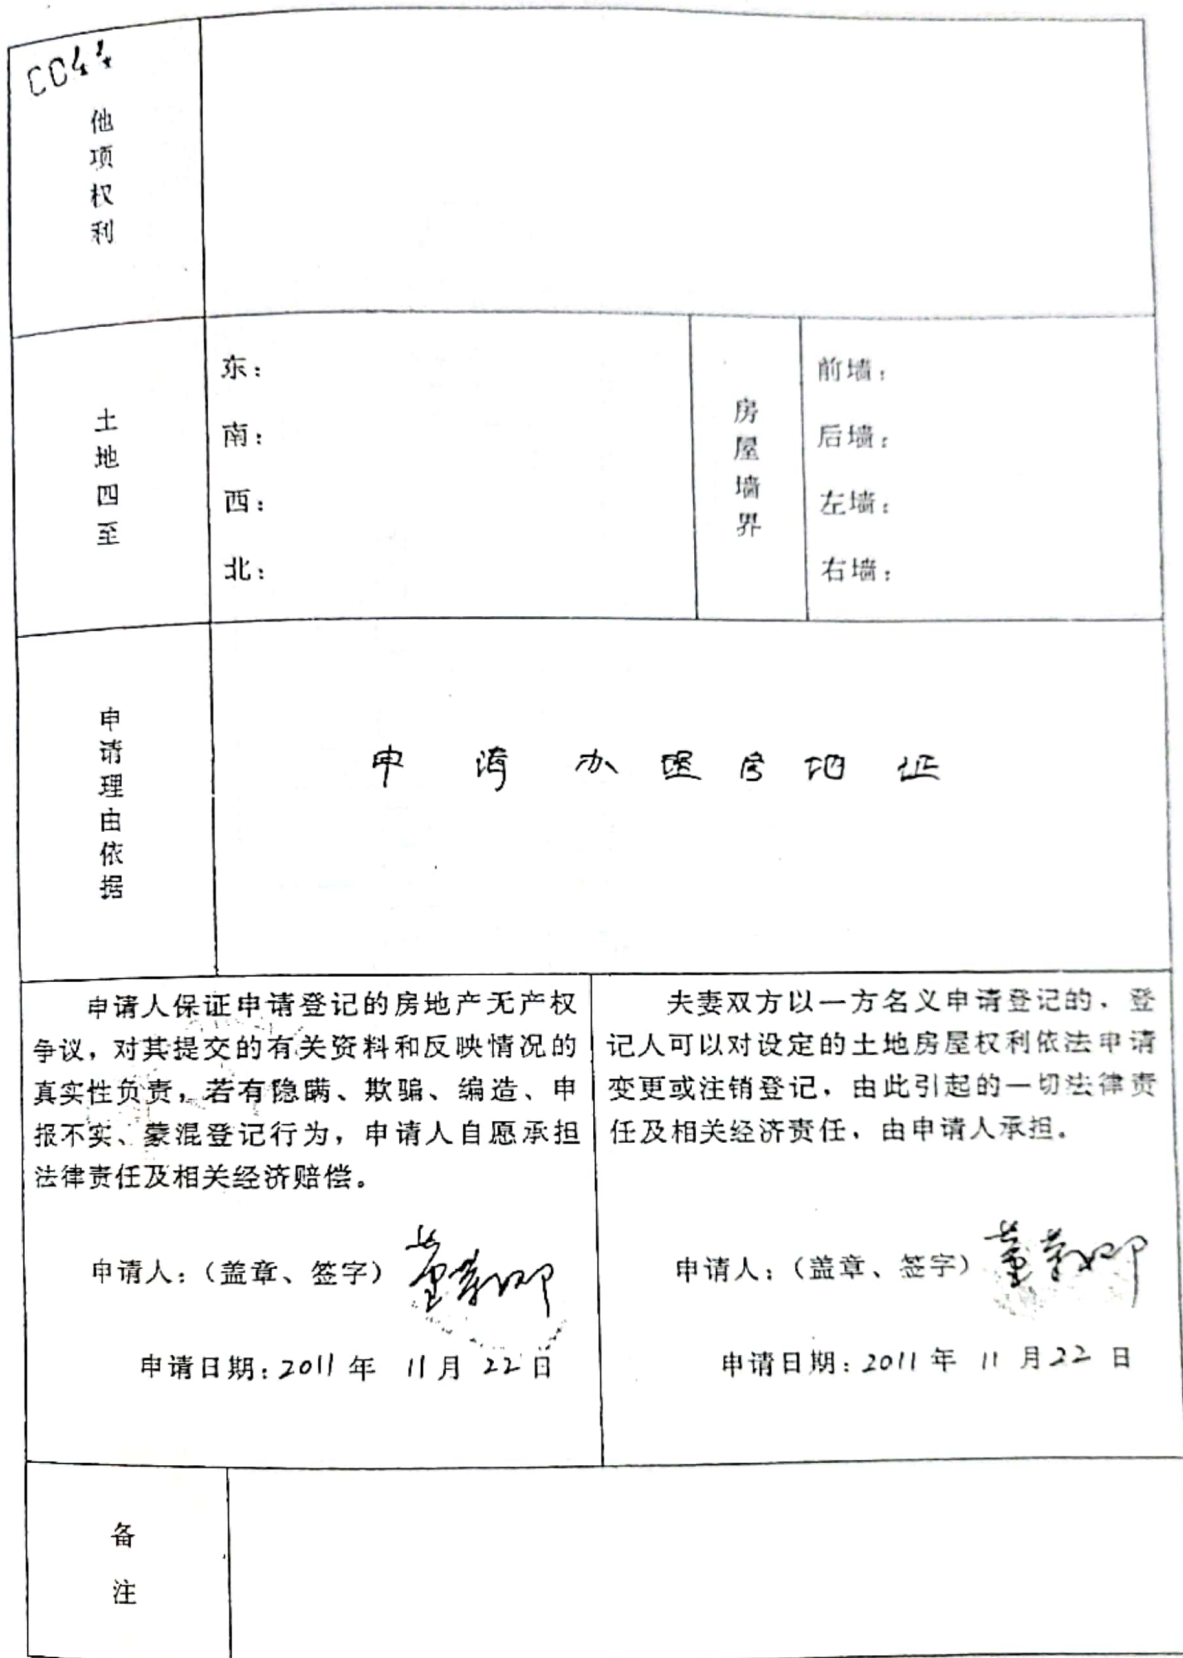 他项权利
土地四至
东：
南：
西：
北：
房屋墙界
前墙：
后墙：
左墙：
右墙：
申请理由依据
申请办理房地证
申请人保证申请登记的房地产无产权
争议，对其提交的有关资料和反映情况的
真实性负责，若有隐瞒、欺骗、编造、申
报不实、蒙混登记行为，申请人自愿承担
法律责任及相关经济赔偿。
申请人：（盖章、签字）
申请日期：2011年 11月 22日
夫妻双方以一方名义申请登记的，登
记人可以对设定的土地房屋权利依法申请
变更或注销登记，由此引起的一切法律责
任及相关经济责任，由申请人承担。
申请人：（盖章、签字）
申请日期：2011年 11月22日
备注